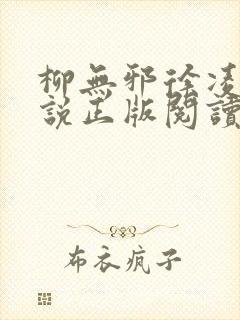 柳無邪徐凌
說正版閱讀
布衣疯子